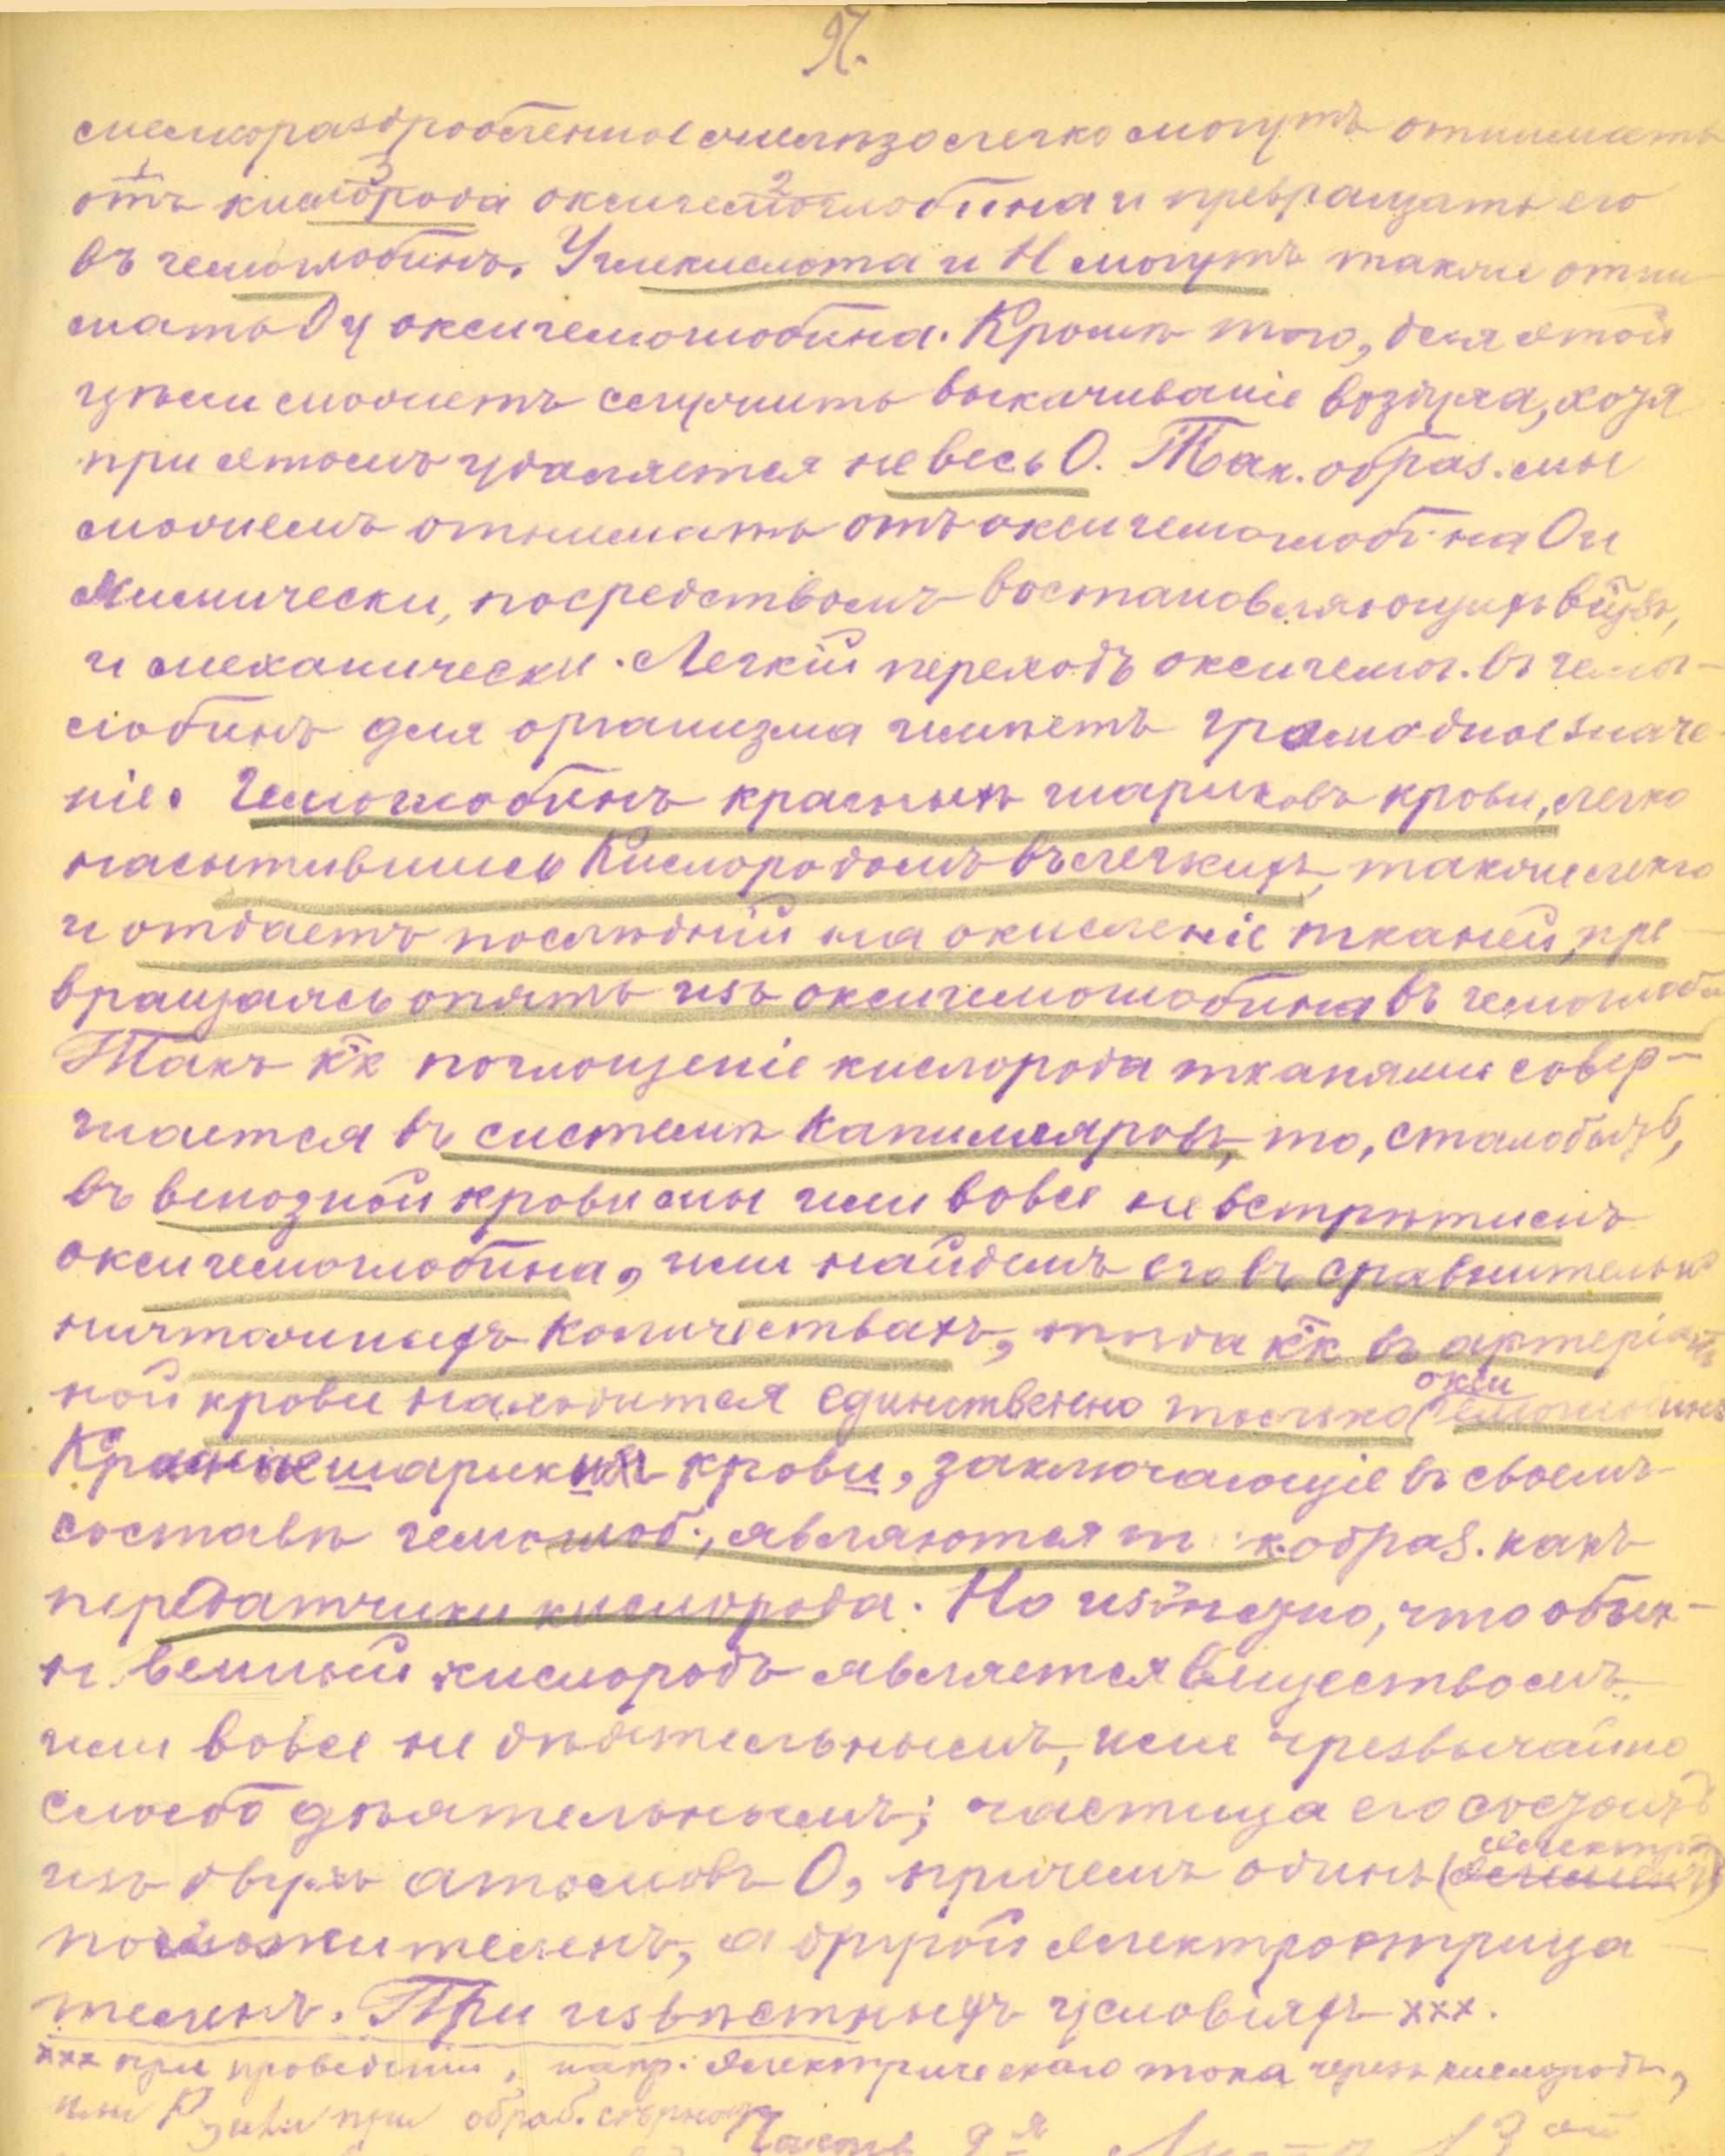 97.
мелкораздробленное желѣзо легко могутъ отнимать
отъ кислорода оксигемоглобина и превращать его
въ гемоглобинъ. Углекислота и H могутъ также отни
мать O у оксигемоглобина. Кромѣ того, для этой
цѣли можетъ служить выкачиваніе воздуха, хотя
при этомъ удаляется не весь O. Так. образ. мы
можемъ отнимать отъ оксигемоглобина O и
химически, посредствомъ востановляющихъ в-щъ,
и механически. Легкій переходъ оксигемог. въ гемог-
лобинъ для организма имѣетъ громадное значе
ніе. Гемоглобинъ красныхъ шариковъ крови, легко
насытившись кислородомъ въ легкихъ, также легко
и отдаетъ послѣдній на окисленіе тканей, пре-
вращаясь опять изъ оксигемоглобина въ гемоглоби
Такъ к̃к поглощеніе кислорода тканями совер-
шается въ системѣ капилляровъ, то, сталобыть,
въ венозной крови мы или вовсе не встрѣтимъ
оксигемоглобина, или найдемъ его въ сравнительно
ничтожныхъ количествахъ, тогда к̃к въ артеріаль
ной крови находится единственно только (окси гемоглобинъ
Красные шарики крови, заключающіе въ своемъ
составѣ гемоглоб., являются т. к. образ. какъ
передатчики кислорода. Но извѣстно, что обык-
н.венный кислородъ является веществомъ
или вовсе не дѣятельнымъ, или чрезвычайно
слабо дѣятельнымъ; частица его состоитъ
изъ двухъ атомовъ O, причемъ одинъ (электро
положителенъ, а другой электроотрица
теленъ. При извѣстныхъ условіяхъ xxx.
xxx при проведеніи, напр. электрическаго тока черезъ кислородъ,
или при обраб. сѣрной
Часть 2я Листъ 13ый